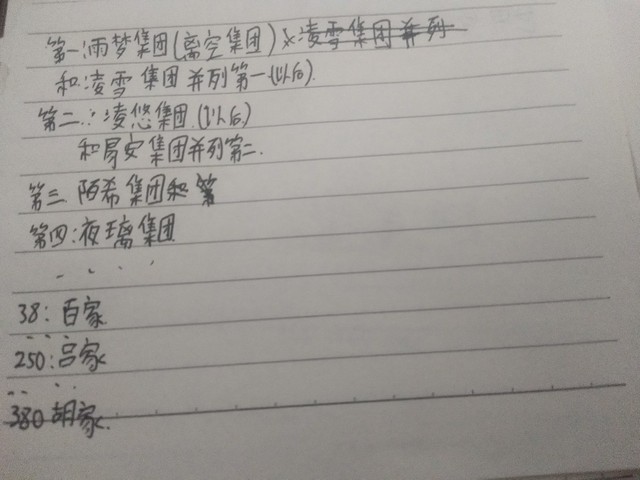 第一:雨梦集团(离空集团)凌雪集团并列
和凌雪集团并列第一(以后).
第二:凌悠集团.(以后)
和易安集团并列第二.
第三 陌希集团和第
第四:夜璃集团
....
38:百家
....
250:吕家
....
380 胡家.